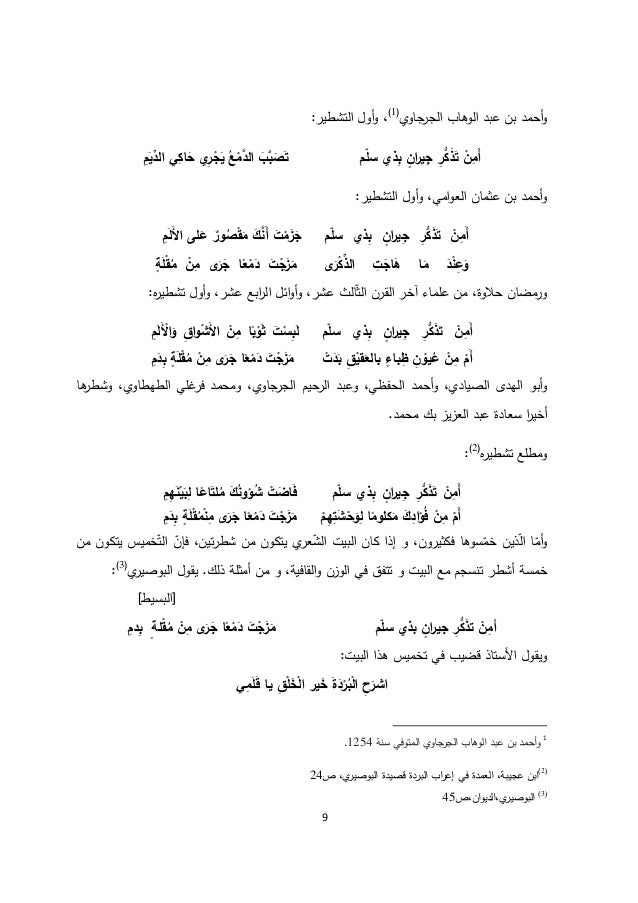 وأحمد بن عبد الوهاب الجرجاوي(1)، وأول التشطير:
أَمِنْ تَذَكُّرِ جيرانٍ بِذي سلّم تَصَبَّبَ الدَّمْعُ يَجْرِي حَاكِي الدِّيَمِ
وأحمد بن عثمان العوامي، وأول التشطير:
أَمِنْ تَذَكُّرِ جيرانٍ بِذي سلّم جَزَمْتَ أَنَّكَ مَقْصُورٌ عَلى الأَلَمِ
وَعِنْدَ مَا هَاجَتِ الذِّكْرَى مَزَجْتَ دَمْعًا جَرَى مِنْ مُقْلَةٍ
ورمضان حلاوة، من علماء آخر القرن الثّالث عشر، وأوائل الرابع عشر، وأول تشطيره:
أَمِنْ تَذَكُّرِ جيرانٍ بِذي سلّم لَبِسْتَ ثَوْبًا مِنَ الأَشْواقِ وَالْأَلَمِ
أَمْ مِنْ عُيونِ ظِباءٍ بِالعَقيْقِ بَدَتْ مَزَجْتَ دَمْعًا جَرَى مِنْ مُقْلَةٍ بِدَمِ
وأبو الهدى الصيادي، وأحمد الحفظي، وعبد الرحيم الجرجاوي، ومحمد فرغلي الطهطاوي، وشطرها
أخيرا سعادة عبد العزيز بك محمد.
ومطلع تشطيره(2):
أَمِنْ تَذَكُّرِ جيرانٍ بِذي سلّم فَاضَتْ شُؤونُكَ مُلتَاعًا لِبَيْنَهِمِ
أَمْ مِنْ فُؤادِكَ مَكلومًا لِوَحْشَتِهِمْ مَزَجْتَ دَمْعًا جَرَى مِنْمُقْلَةٍ بِدَمِ
وأمّا الّذين خمّسوها فكثيرون، و إذا كان البيت الشّعري يتكون من شطرتين، فإنّ التّخميس يتكون من
خمسة أشطر تنسجم مع البيت و تتفق في الوزن والقافية، و من أمثلة ذلك. يقول البوصيري(3):
[البسيط]
أَمِنْ تذكُّرِ جيرانٍ بذي سلّم مَزَجْتَ دَمْعًا جَرَى مِنْ مُقْلةٍ بِدمِ
ويقول الأستاذ قضيب في تخميس هذا البيت:
اشرَحِ الْبُرْدَةَ خَير الْخَلْقِ يا قَلَمِي
1 وأحمد بن عبد الوهاب الجرجاوي المتوفي سنة 1254.
(2)ابن عجيبة، العمدة في إعراب البردة قصيدة البوصيري، ص24
(3) البوصيري،الديوان،ص45
9